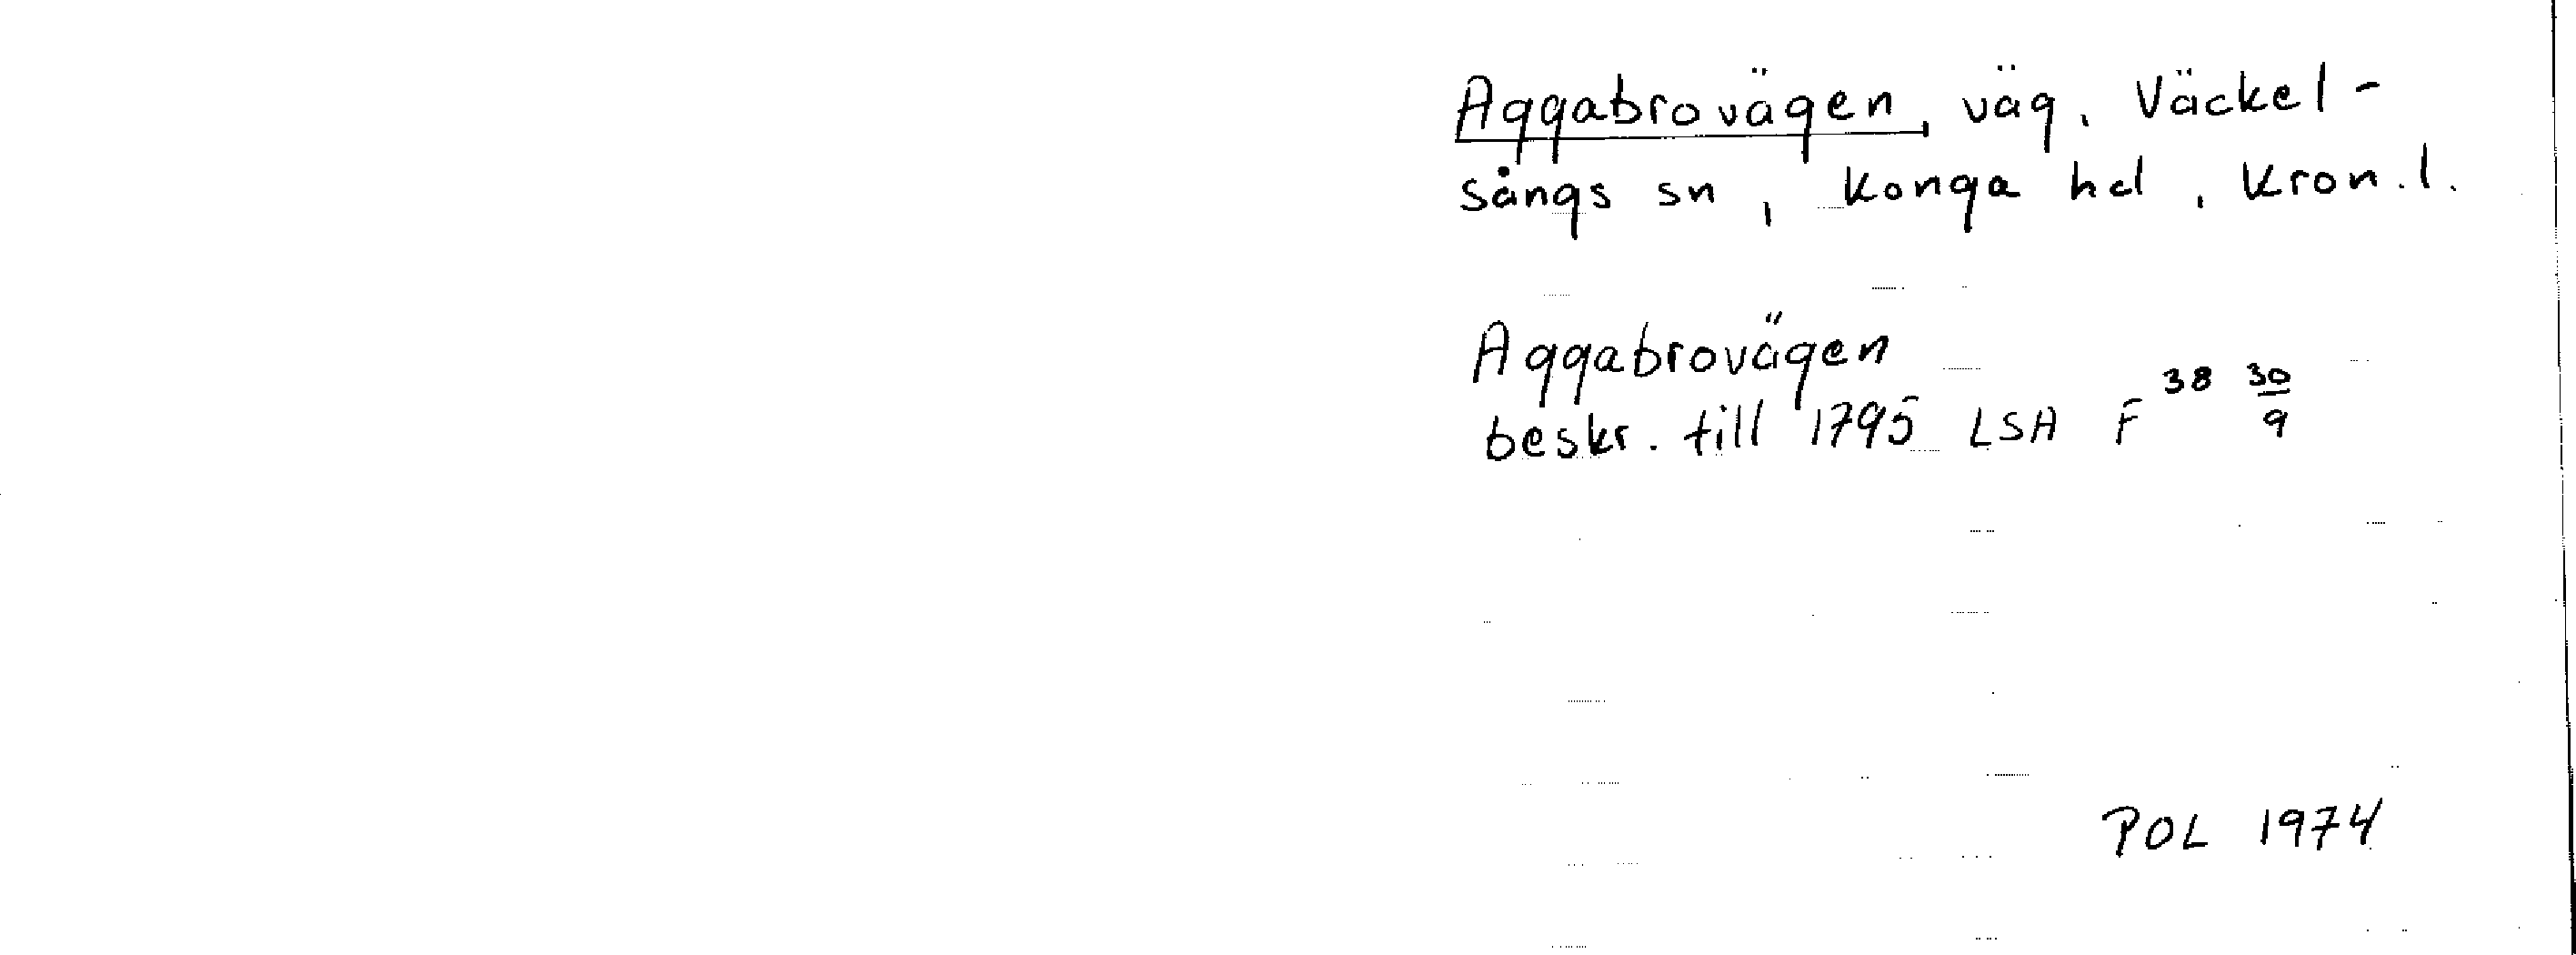 Aggabrovägen, väg, Väckel-
sångs sn, Konga hd, Kron. l.
Aggabrovägen
beskr. till 1795 LSA F 38 30/9
POL 1974